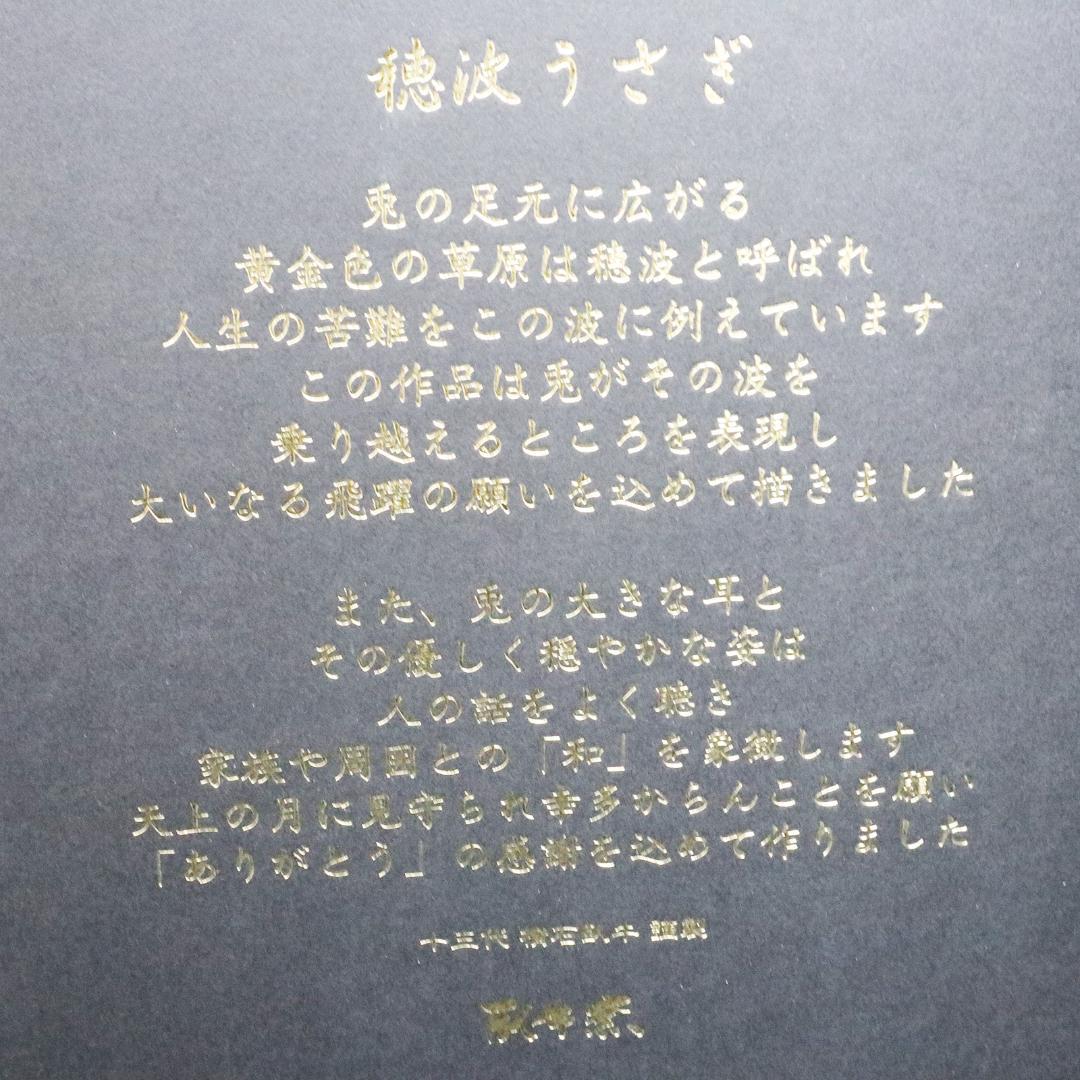 穂波うさぎ
兎の足元に広がる
黄金色の草原は穂波と呼ばれ
人生の苦難をこの波に例えています
この作品は兎がその波を
乗り越えるところを表現し
大いなる飛躍の願いを込めて描きました
また、兎の大きな耳と
その優しく穏やかな姿は
人の話をよく聴き
家族や周囲との「和」を象徴します
天上の月に見守られ幸多からんことを願い
「ありがとう」の感謝を込めて作りました
十三代 横石臥牛 謹製
臥牛窯